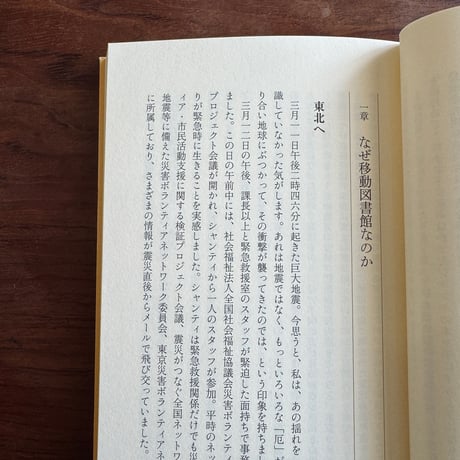 一章　なぜ移動図書館なのか
東北へ
三月一一日午後二時四六分に起きた巨大地震。今思うと、私は、あの揺れを
識していなかった気がします。あれは地震ではなく、もっといろいろな「厄」が
り合い地球にぶつかって、その衝撃が襲ってきたのでは、という印象を持ちまし
三月一二日の午後、課長以上と緊急救援室のスタッフが緊迫した面持ちで事務
ました。この日の午前中には、社会福祉法人全国社会福祉協議会災害ボランティ
プロジェクト会議が開かれ、シャンティから一人のスタッフが参加。平時のネッ
りが緊急時に生きることを実感しました。シャンティは緊急救援関係だけでも災
ィア・市民活動支援に関する検証プロジェクト会議、震災がつなぐ全国ネットワ
地震等に備えた災害ボランティアネットワーク委員会、東京災害ボランティアネ
に所属しており、さまざまの情報が震災直後からメールで飛び交っていました。